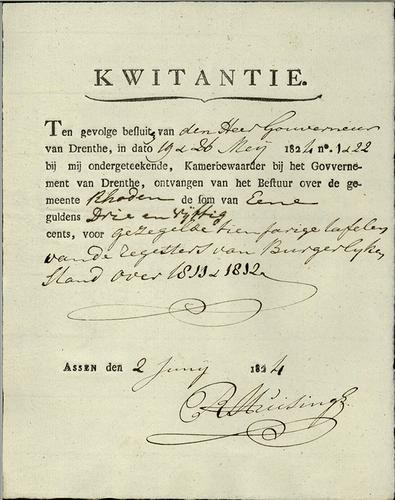 KWITANTIE.
Ten gevolge besluit van den Heer Gouverneur
van Drenthe, in dato 19 & 26 Meij 1824 nº. 1 & 22
bij mij ondergeteekende, Kamerbewaarder bij het Govverne-
ment van Drenthe, ontvangen van het Bestuur over de ge-
meente Rhoden de som van Eene
guldens Drie en vyftig
cents, voor gezegelde tien jarige tafelen
van de registers van Burgerlyke
Stand over 1811 & 1812
ASSEN den 2 Junij 1824